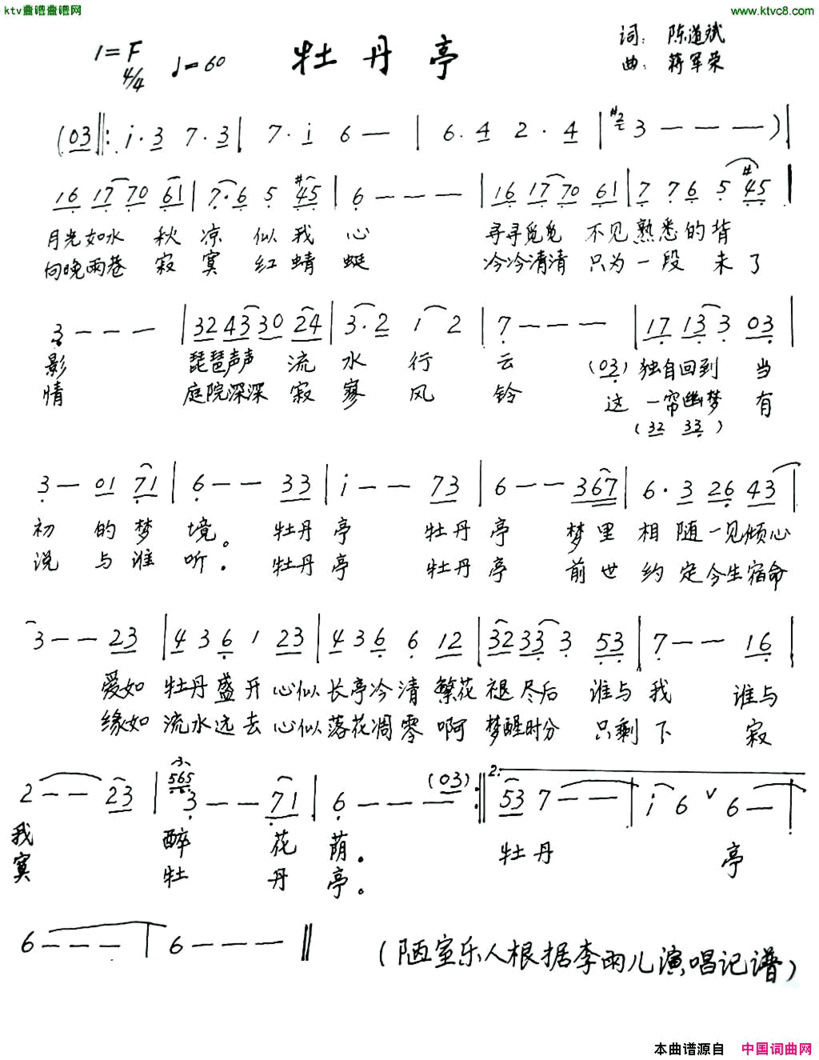 ktv歌谱歌谱网 www.ktvc8.com
1=F 4/4 ♩=60 牡丹亭 词：陈道斌
曲：蒋军荣
(03‖: i·3 7·3 | 7·i 6— | 6·4 2·4 | #2 3———)|
16 1770 61 | 7·6 5 #45 | 6——— | 16 1770 61 | 7 76 5 #45 |
月光如水 秋凉似我心 寻寻觅觅 不见熟悉的背
向晚雨巷 寂寞红蜻蜓 冷冷清清 只为一段未了
3——— | 32 4330 24 | 3·2 1 2 | 7——— | 17 133 03 |
影 琵琶声声 流水行云 (03) 独自回到 当
情 庭院深深 寂寥风铃 这一帘幽梦 有
(32 33)
3— 01 71 | 6—— 33 | i—— 73 | 6—— 367 | 6·3 26 43 |
初 的梦境。 牡丹亭 牡丹亭 梦里相随一见倾心
说 与谁听. 牡丹亭 牡丹亭 前世约定今生宿命
3—— 23 | 4 3 6 1 23 | 4 3 6 6 12 | 3233 3 53 | 7—— 16 |
爱如 牡丹盛开 心似 长亭冷清 繁花 褪尽后 谁与我 谁与
缘如 流水远去 心似 落花凋零 啊 梦醒时分 只剩下 寂
2—— 23 | 565 3—— 71 | 6——— (03) :‖ 2. 53 7—— | i 6 ∨ 6— |
我 醉花荫。 牡丹 亭
寞 牡丹亭。
6——— | 6——— ‖ (陋室乐人根据李雨儿演唱记谱)
本曲谱源自 中国词曲网